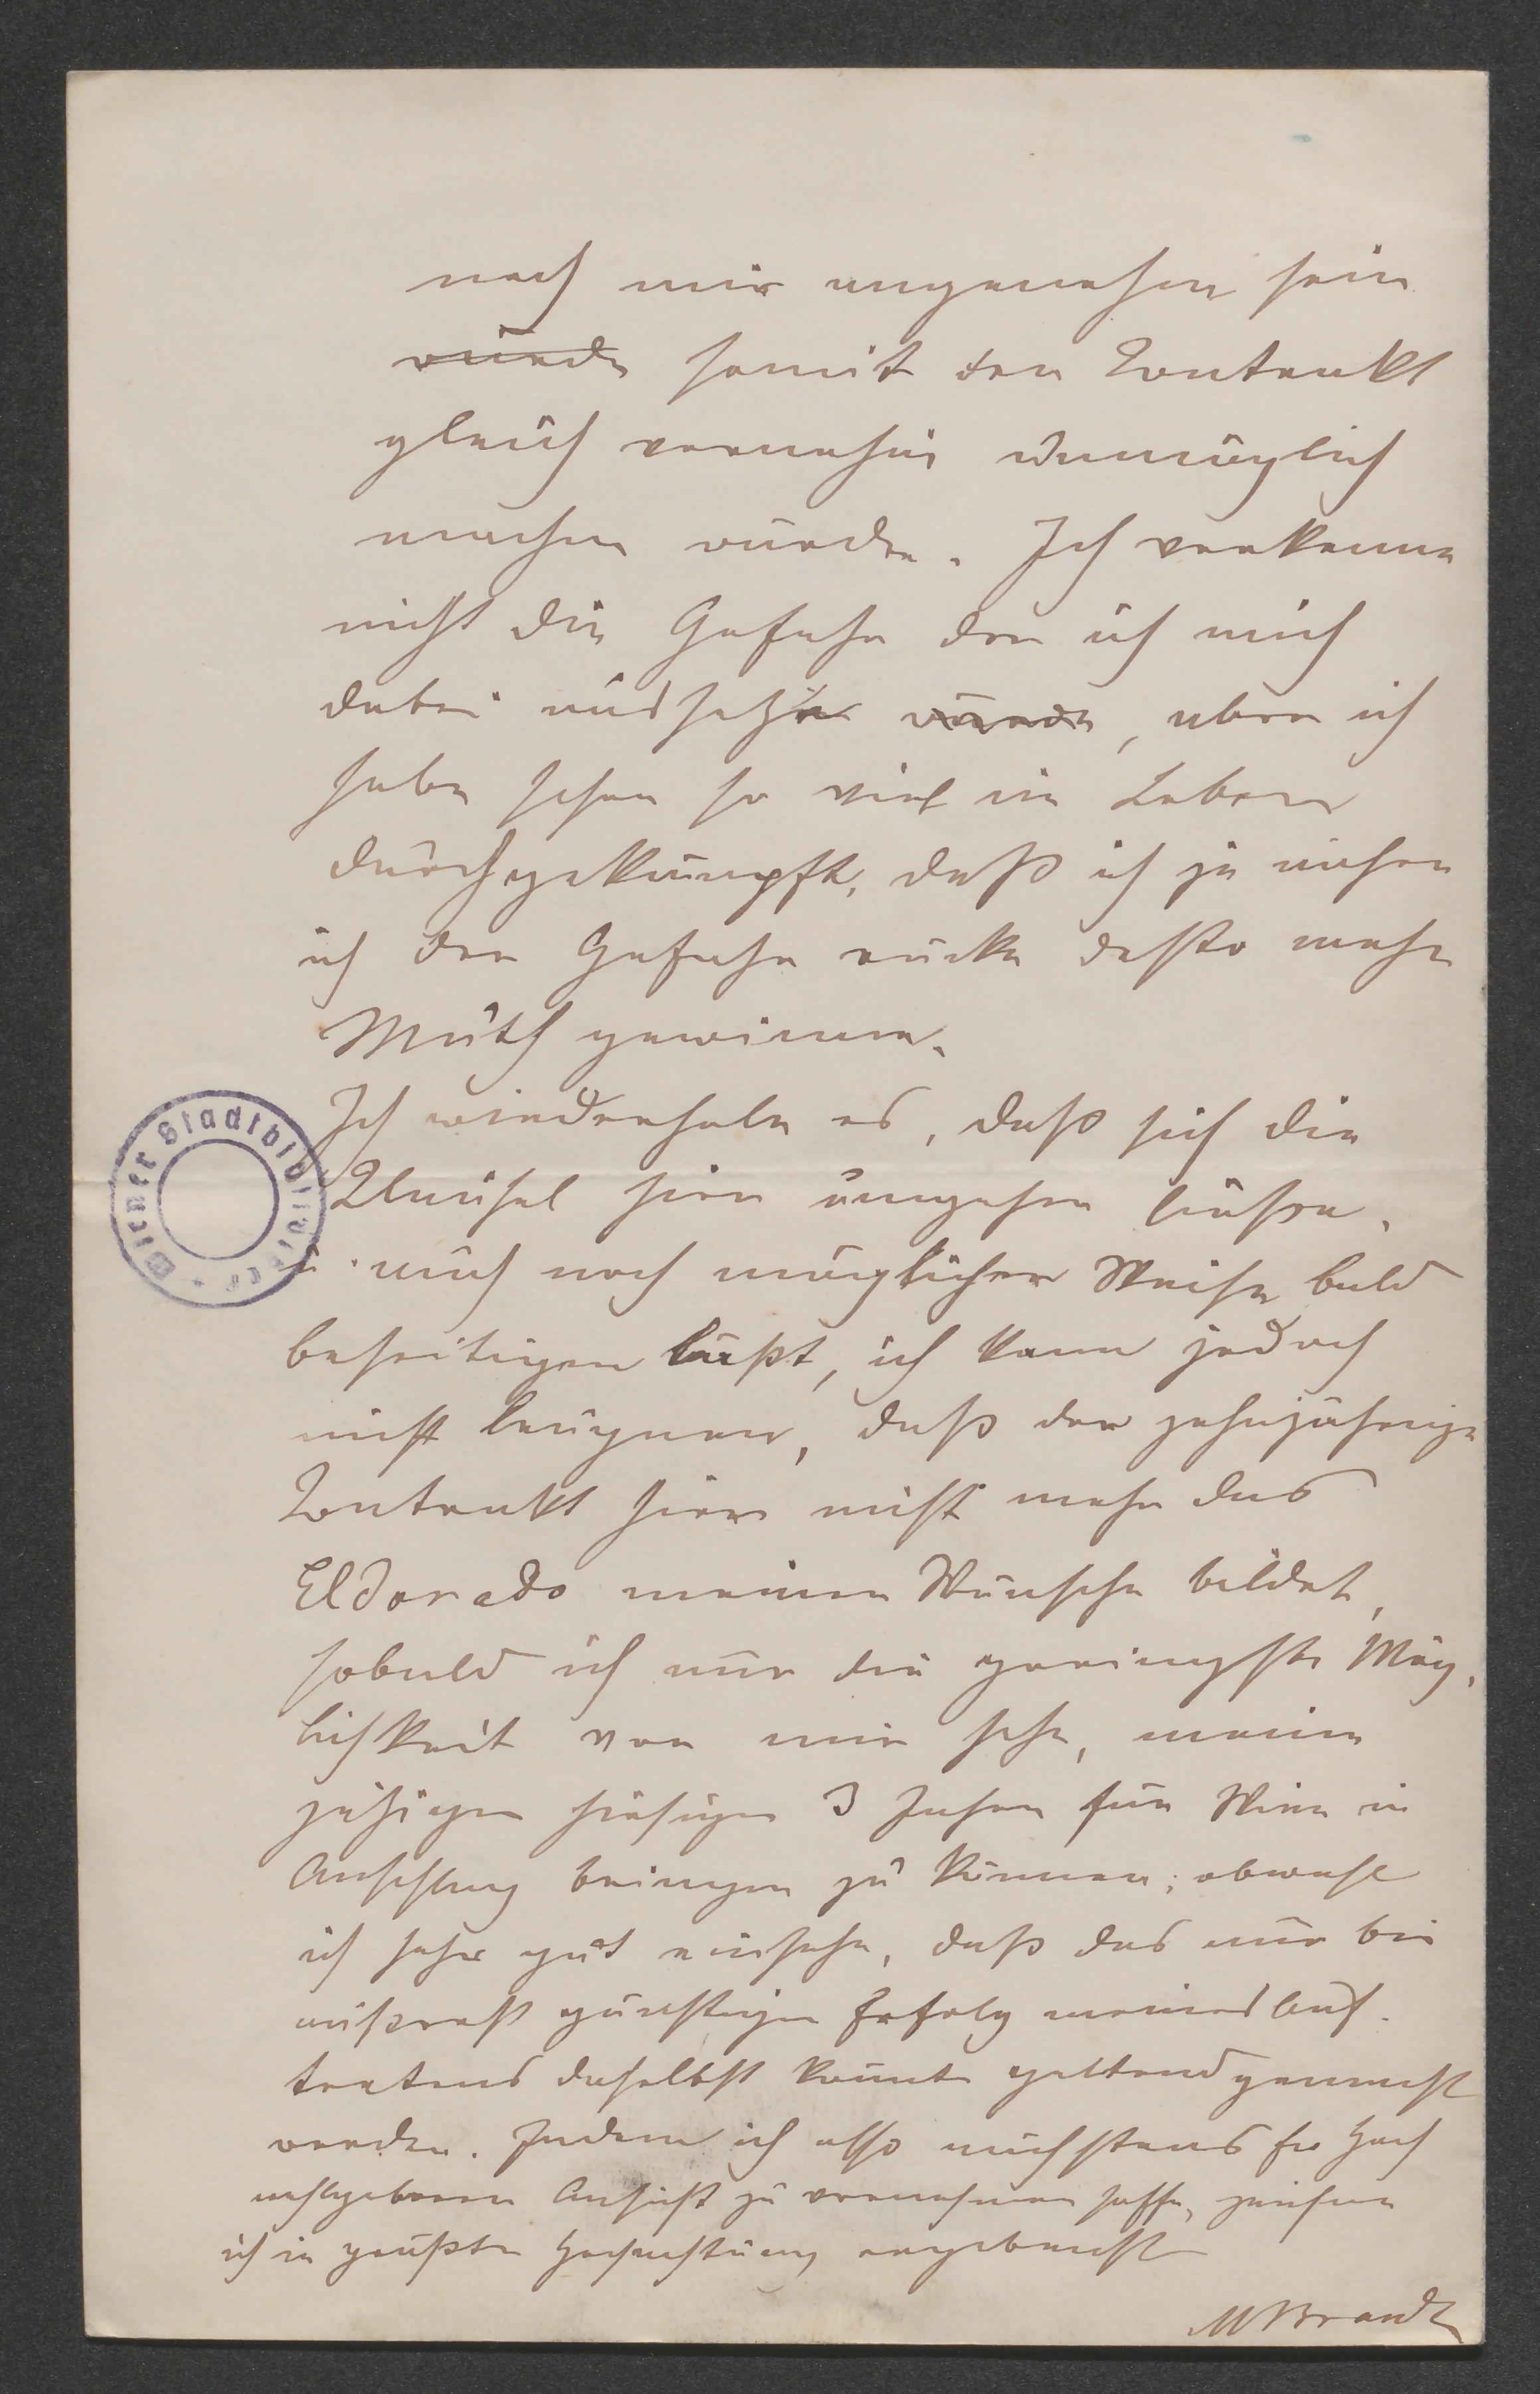 noch mir angenehm sein
würde somit den Contrakt
gleich vorneherein unmöglich
machen würde. Ich verkenne
nicht die Gefahr der ich mich
dabei aussetze würde, aber ich
habe schon so viel im Leben
durchgekämpft, daß ich je näher
ich der Gefahr rücke desto mehr
Muth gewinne.
Ich wiederhole es, daß sich die
Clausel hier umgehen ließe,
u. auch noch möglicher Weise bald
beseitigen läßt, ich kann jedoch
nicht leugnen, daß der zehnjährige
Contrakt hier nicht mehr das
Eldorado meiner Wünsche bildet,
sobald ich nur die geringste Mög-
lichkeit vor mir sehe, meine
hiesigen 3 Jahre für Wien in
Anschlag bringen zu können; obwohl
ich sehr gut einsehe, daß das nur bei
äußerst günstigen Erfolg meines Auf-
tretens daselbst könnte geltend gemacht
werden. Indem ich also nächstens Ew Hoch
wohlgeboren Ansicht zu vernehmen hoffe, zeichne
ich in größter Hochachtung ergebenst
MBrandt
Wiener Stadtbibliothek